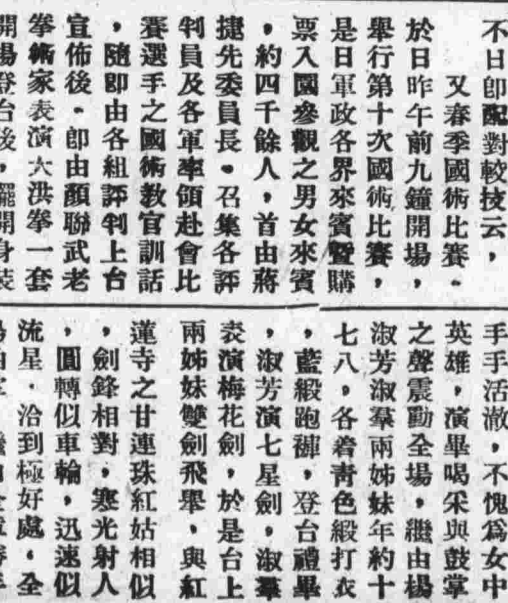 不日卽配對較技云，
又春季國術比賽．
於日昨午前九鐘開場，
舉行第十次國術比賽，
是日軍政各界來賓暨購
票入園參觀之男女來賓
，約四千餘人，首由蔣
捷先委員長．召集各評
判員及各軍率領赴會比
賽選手之國術敎官訓話
，隨卽由各組評判上台
宣佈後．卽由顏聯武老
拳術家表演大洪拳一套
開場登台後，擺開身裝
手手活澈，不愧爲女中
英雄，演畢喝采與鼓掌
之聲震動全場，繼由楊
淑芳淑羣兩姊妹年約十
七八，各着靑色緞打衣
，藍緞跑褲，登台禮畢
，淑芳演七星劍，淑羣
表演梅花劍，於是台上
兩姊妹雙劍飛舉，與紅
蓮寺之甘連珠紅姑相似
，劍鋒相對，寒光射人
，圓轉似車輪，迅速似
流星．洽到極好處．全